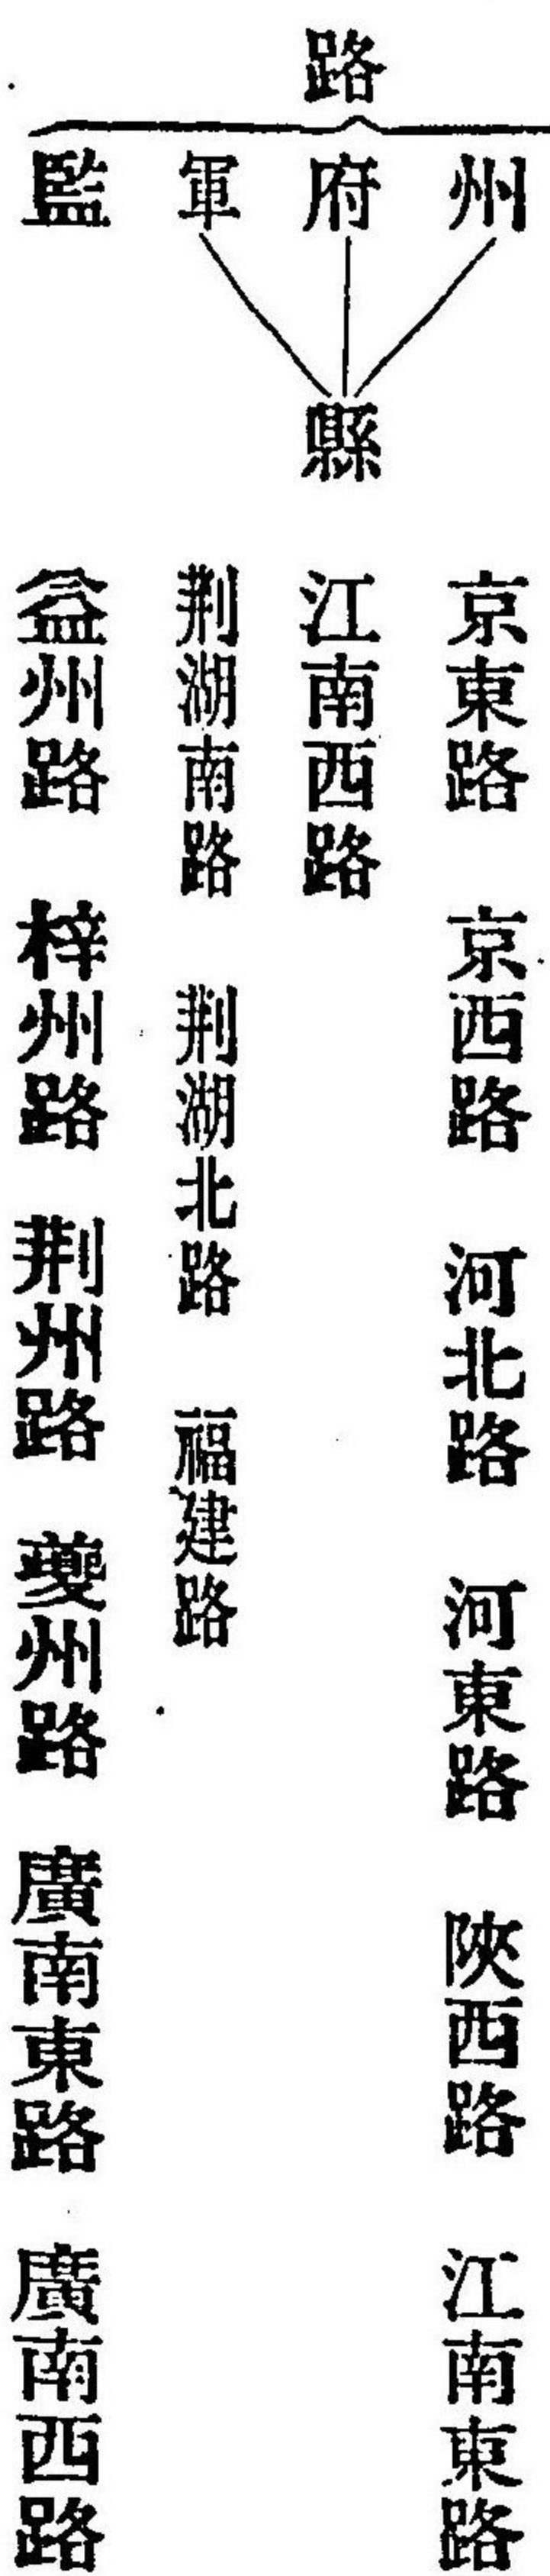 路
州 府 軍 監
縣
京東路 京西路 河北路 河東路 陜西路 江南東路
江南西路
荆湖南路 荆湖北路 福建路
益州路 梓州路 荆州路 夔州路 廣南東路 廣南西路